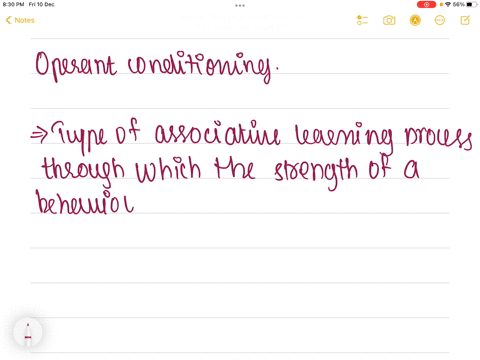 8:30 PM Fri 10 Dec
56%
Notes
Operant conditioning.
⇒ Type of associative learning process
through which the strength of a
behavior